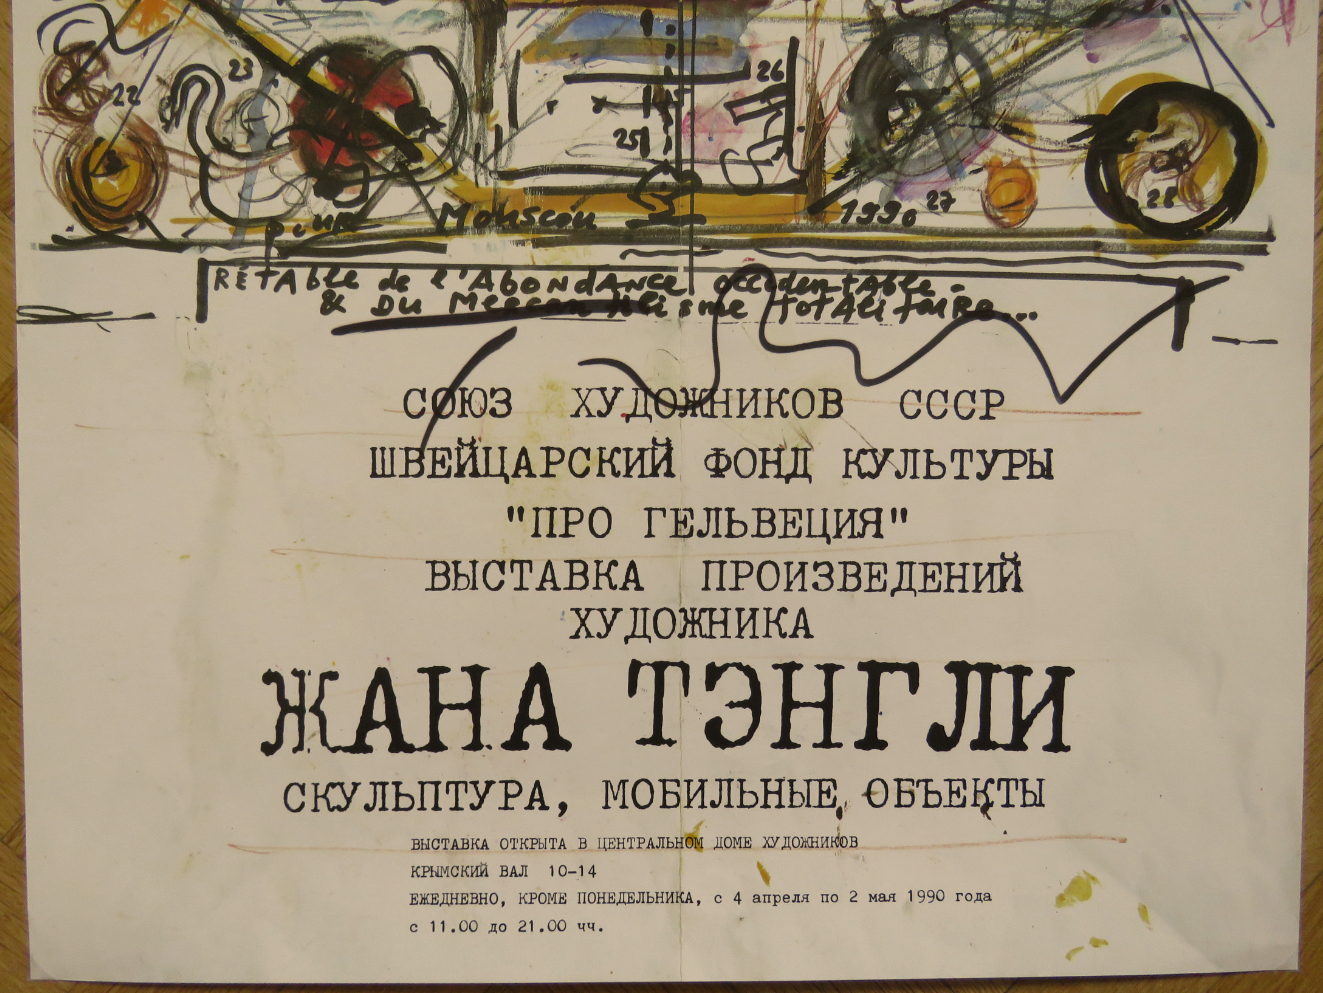 22
23
25
26
27
28
pour Mouscou 1990
RETABLE de l'ABONDANCE occidentable -
& DU Mercantilisme TOTALitaire...
СОЮЗ ХУДОЖНИКОВ СССР
ШВЕЙЦАРСКИЙ ФОНД КУЛЬТУРЫ
"ПРО ГЕЛЬВЕЦИЯ"
ВЫСТАВКА ПРОИЗВЕДЕНИЙ
ХУДОЖНИКА
ЖАНА ТЭНГЛИ
СКУЛЬПТУРА, МОБИЛЬНЫЕ, ОБЪЕКТЫ
ВЫСТАВКА ОТКРЫТА В ЦЕНТРАЛЬНОМ ДОМЕ ХУДОЖНИКОВ
КРЫМСКИЙ ВАЛ 10-14
ЕЖЕДНЕВНО, КРОМЕ ПОНЕДЕЛЬНИКА, с 4 апреля по 2 мая 1990 года
с 11.00 до 21.00 чч.